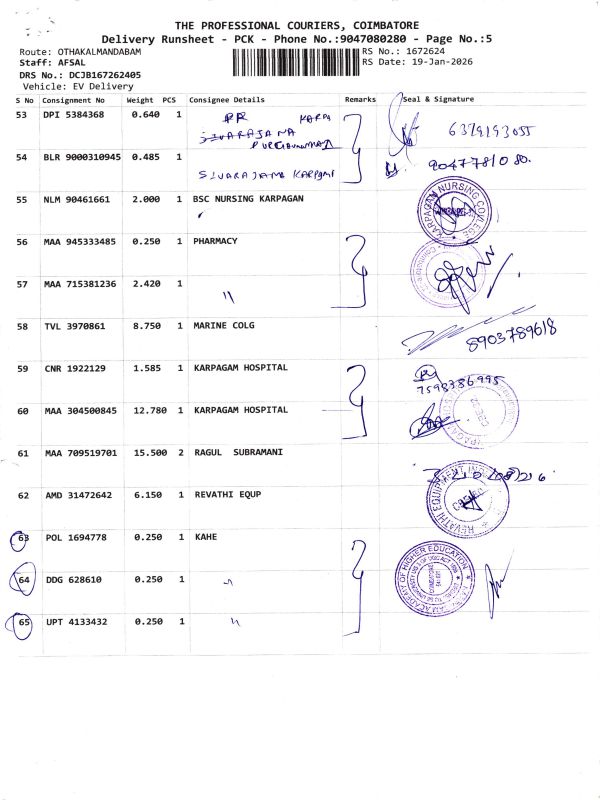 THE PROFESSIONAL COURIERS, COIMBATORE
Delivery Runsheet - PCK - Phone No.:9047080280 - Page No.:5
Route: OTHAKALMANDABAM
RS No.: 1672624
Staff: AFSAL
RS Date: 19-Jan-2026
DRS No.: DCJB167262405
Vehicle: EV Delivery
S No Consignment No Weight PCS Consignee Details Remarks Seal & Signature
53 DPI 5384368 0.640 1
6379193055
54 BLR 9000310945 0.485 1 KARPAGAM
9047781080
55 NLM 90461661 2.000 1 BSC NURSING KARPAGAN
KARPAGAM NURSING COLLEGE
56 MAA 945333485 0.250 1 PHARMACY
57 MAA 715381236 2.420 1 "
58 TVL 3970861 8.750 1 MARINE COLG
8903789618
59 CNR 1922129 1.585 1 KARPAGAM HOSPITAL
7598386995
60 MAA 304500845 12.780 1 KARPAGAM HOSPITAL
61 MAA 709519701 15.500 2 RAGUL SUBRAMANI
62 AMD 31472642 6.150 1 REVATHI EQUP
REVATHI EQUIPMENT
63 POL 1694778 0.250 1 KAHE
ACADEMY OF HIGHER EDUCATION
64 DDG 628610 0.250 1 "
65 UPT 4133432 0.250 1 "